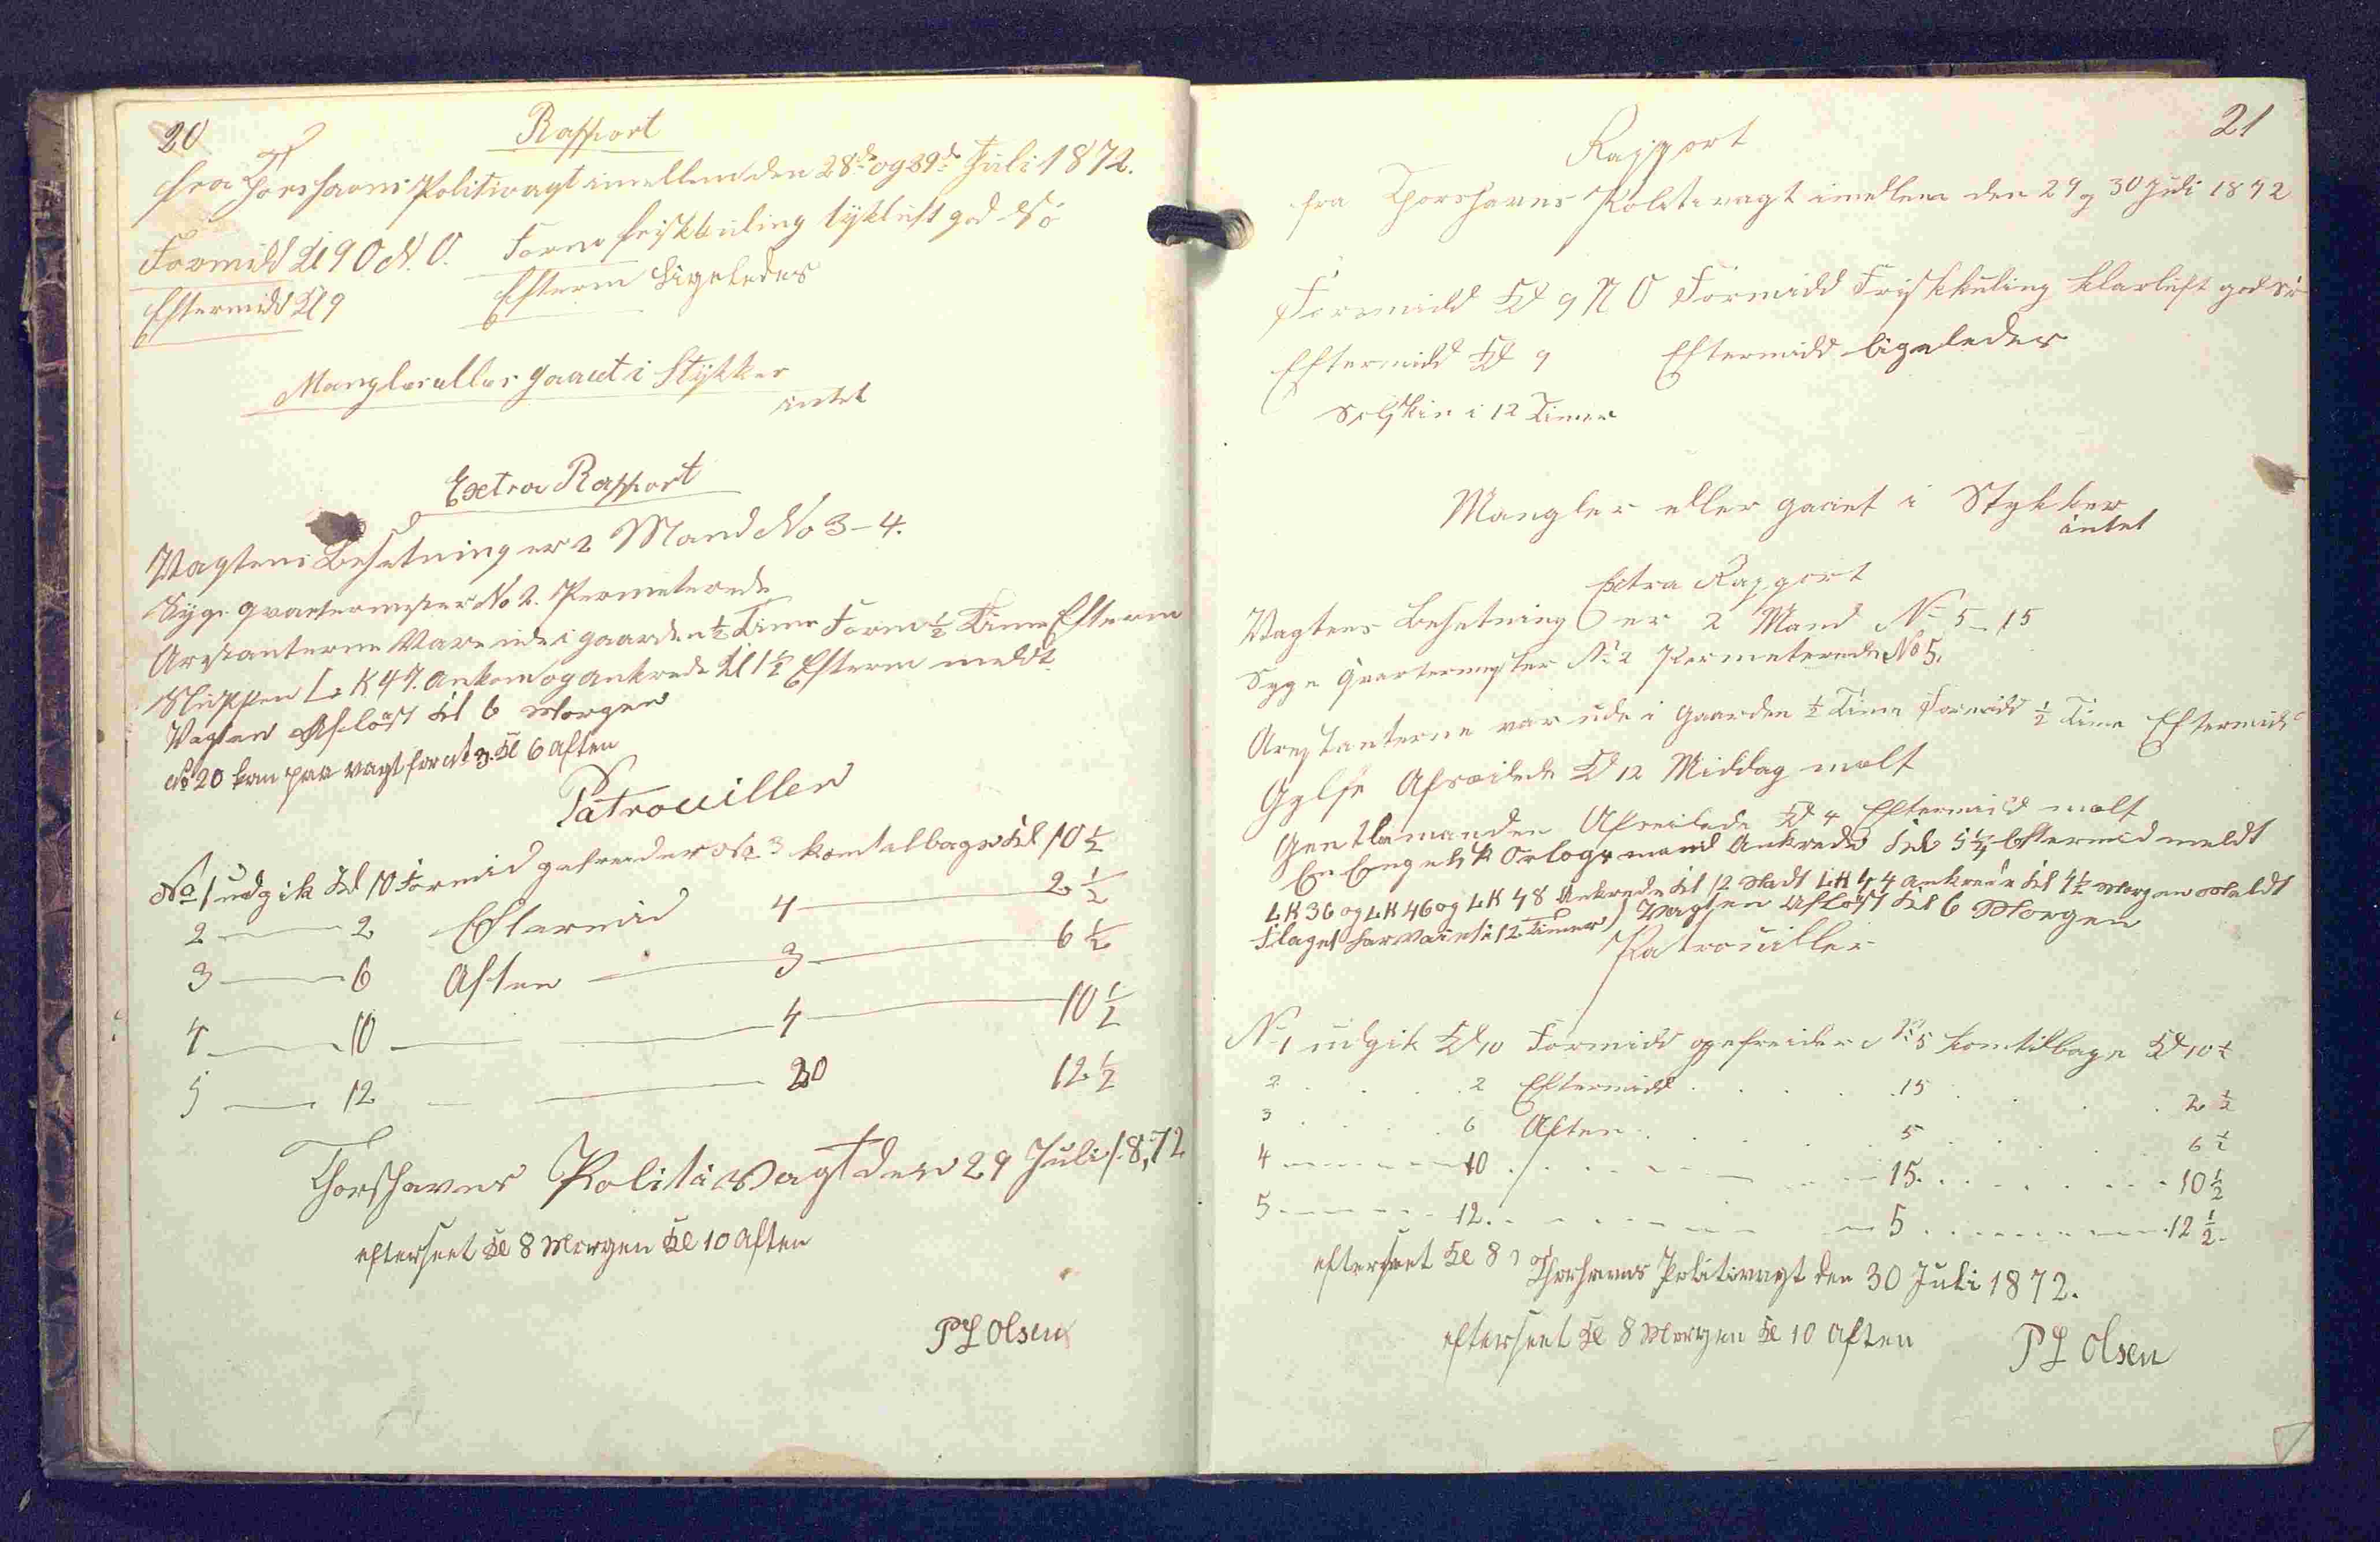 20
Rapport
fra Thorshavns Politivagt imellem den 28de og 29de Juli 1872.
Formidd Kl 9 O N. O. Form friskkuling tykluft god Sö
Eftermidd Kl 9 Efterm Ligeledes
Mangler eller gaaet i Stykker
intet
Extra Rapport
Vagtens Besetning er 2 Mand No 3-4.
Syge qvartermester No 2. Permeterede
Arestanterne Vare ude i gaarden ½ Time Form ½ Time Efterm
Sluppen L K 47. Ankom og Ankrede Kl 1½ Efterm meldt
Vagten Aflöst Kl 6 Morgen
No 20 kom paa vagt for No 3. Kl 6 Aften
Patrouiller
No 1 udgik Kl 10 Formid gefreider No 3 kom tilbage Kl 10½
2 2 Eftermid 4 2½
3 6 Aften 3 6½
4 10 4 10½
5 12 20 12½
Thorshavns Politivagt den 29 Juli 1872
efterseet Kl 8 Morgen Kl 10 Aften
P L Olsen
21
Rapport
fra Thorshavns Politivagt imellem den 29 og 30 Juli 1872
Formidd Kl 9 N O Formidd Friskkuling klarluft god Sö
Eftermidd Kl 9 Eftermidd ligeledes
Solskin i 12 Timer
Mangler eller gaaet i Stykker
intet
Extra Rapport
Vagtens Besetning er 2 Mand No 5-15
Syge Qvartermester No 2 Permeterede No 5.
Arestanterne var ude i Gaarden ½ Time Formidd ½ Time Eftermidd
Gylfe Afseilede Kl 12 Middag melt
Gentlemanden Afseilede Kl 4 Eftermidd melt
En Engelsk Orlogsmand Ankrede Kl 5¼ Eftermid meldt
LK 36 og LK 46 og LK 48 Ankrede Kl 12 Nadt LK 44 Ankrede Kl 4½ Morgen Meldt
Flaget har Vaiet i 12 Timer) Vagten Aflöst Kl 6 Morgen
Patrouiller
No 1 udgik Kl 10 Formidd gefreider No 5 kom tilbage Kl 10½
2 2 Eftermidd 15 2½
3 6 Aften 5 6½
4 10 15 10½
5 12 5 12½
efterseet Kl 8 Thorshavns Politivagt den 30 Juli 1872.
efterseet Kl 8 Morgen Kl 10 Aften P L Olsen